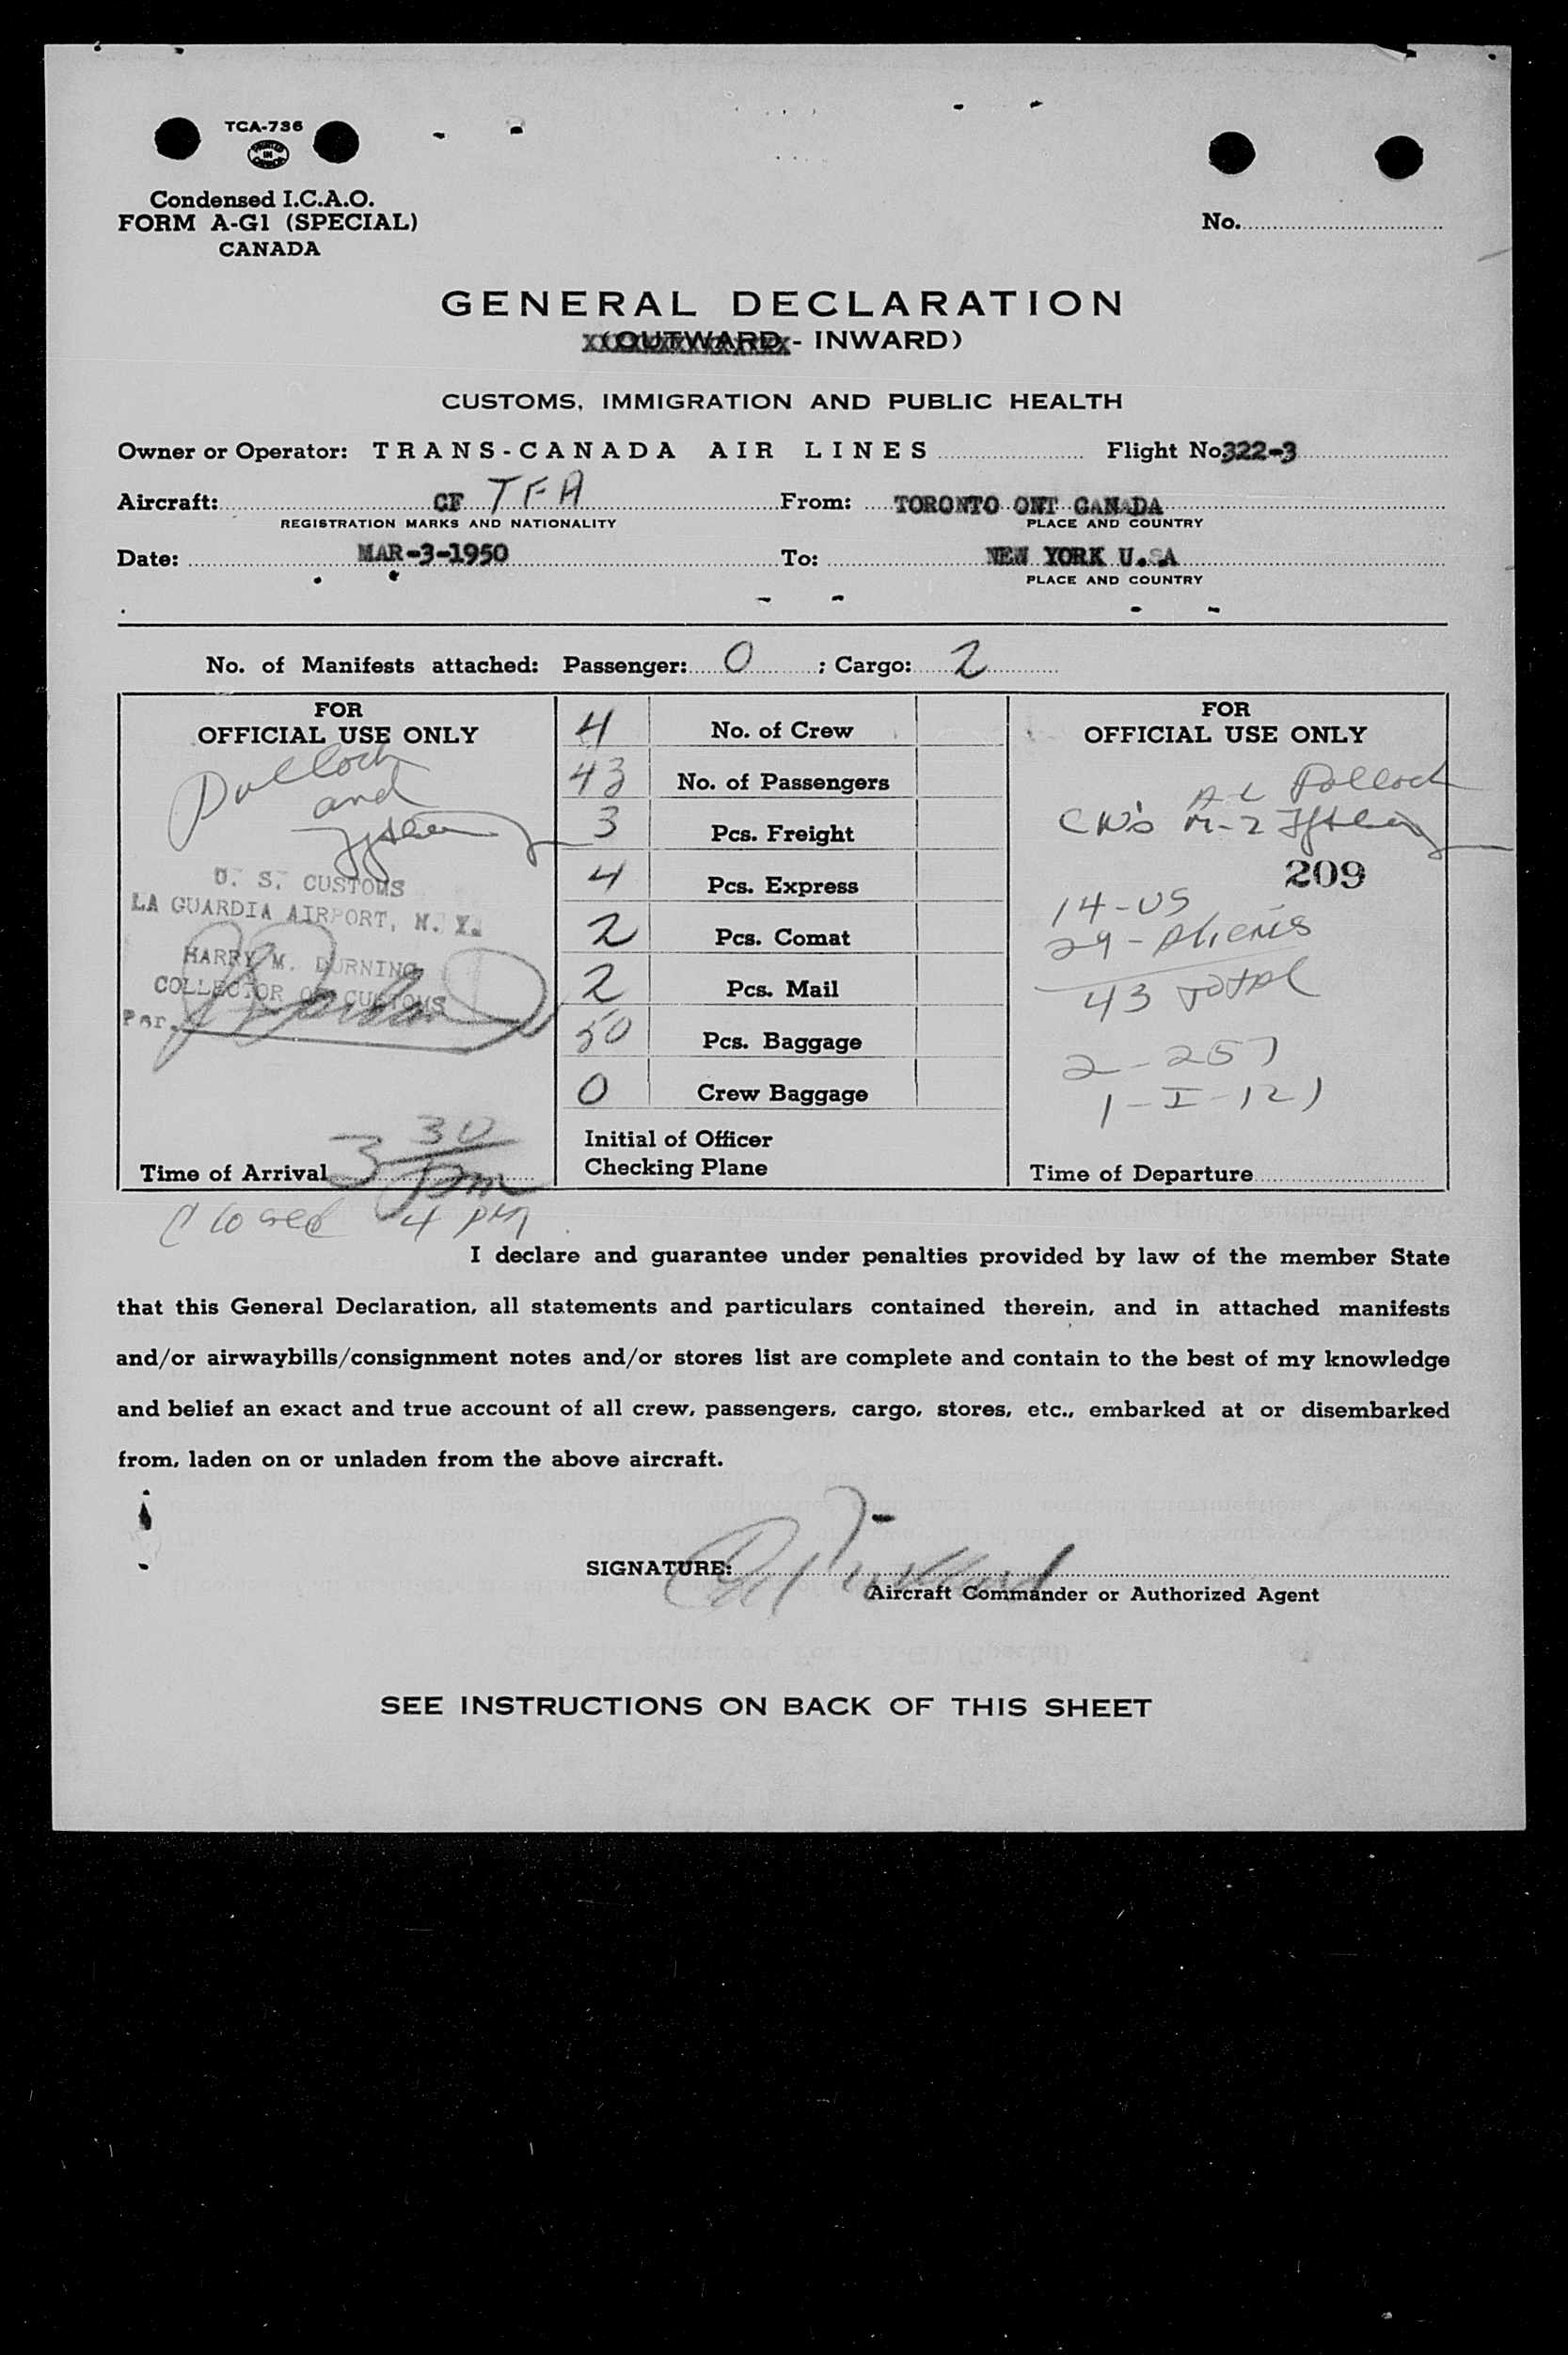 TCA-736
PRINTED IN CANADA
Condensed I.C.A.O.
FORM A-G1 (SPECIAL)
CANADA
No.
GENERAL DECLARATION
(OUTWARD - INWARD)
CUSTOMS, IMMIGRATION AND PUBLIC HEALTH
Owner or Operator: TRANS-CANADA AIR LINES Flight No. 322-3
Aircraft: CF TFA From: TORONTO ONT CANADA
REGISTRATION MARKS AND NATIONALITY PLACE AND COUNTRY
Date: MAR-3-1950 To: NEW YORK U.SA
PLACE AND COUNTRY
No. of Manifests attached: Passenger: 0 ; Cargo: 2
FOR
OFFICIAL USE ONLY
Pollock
and
U. S. CUSTOMS
LA GUARDIA AIRPORT, N. Y.
HARRY M. DURNING
COLLECTOR OF CUSTOMS
Per.
Time of Arrival 3 30 pm
Closed 4 PM
4 No. of Crew
43 No. of Passengers
3 Pcs. Freight
4 Pcs. Express
2 Pcs. Comat
2 Pcs. Mail
50 Pcs. Baggage
0 Crew Baggage
Initial of Officer
Checking Plane
FOR
OFFICIAL USE ONLY
A L Pollock
209
14-US
29-Aliens
43 Total
2-257
1-I-121
Time of Departure
I declare and guarantee under penalties provided by law of the member State
that this General Declaration, all statements and particulars contained therein, and in attached manifests
and/or airwaybills/consignment notes and/or stores list are complete and contain to the best of my knowledge
and belief an exact and true account of all crew, passengers, cargo, stores, etc., embarked at or disembarked
from, laden on or unladen from the above aircraft.
SIGNATURE:
Aircraft Commander or Authorized Agent
SEE INSTRUCTIONS ON BACK OF THIS SHEET